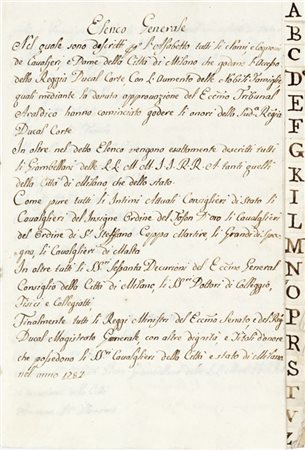 Elenco Generale
Nel quale sono descritti per Alfabetto tutti li Nomi e Cognomi
de Cavalieri e Dame della Città di Milano che godono
della Reggia Ducal Corte Con l'Aumento delle Nobili Famiglie
quali mediante la dovuta approvazione del Eccmo Tribunal
Araldico hanno cominciato godere li onori della Sudª Regia
Ducal Corte
In oltre nel detto Elenco vengono esattamente descritti tutti
li Ciambellani delle LL. MM. II. RR. A tanti quelli
della Città di Milano che dello stato
Come pure tutti li Intimi Attuali Consiglieri di Stato li
Cavaglieri del Insigne Ordine del Toson D'oro li Cavaglieri
del Ordine di Sn Steffano Pappa Martire li Grandi di Spa-
gna, li Cavaglieri di Malta
In oltre tutti li SSri Sesanta Decurioni del Eccmo General
Consiglio della Città di Milano, li SSri Dottori di Colleggio,
Fisici e Collegiatti
Finalmente tutti li Reggi Ministri del Eccmo Senato e del Rº
Ducal Magistrato Camerale, con altre dignità e Titoli d'onore
che possedono li SSri Cavaglieri della Città e stato di Milano
nel anno 1782
A
B
C
D
E
F
G
K
I
L
M
N
O
P
R
S
T
V
Z